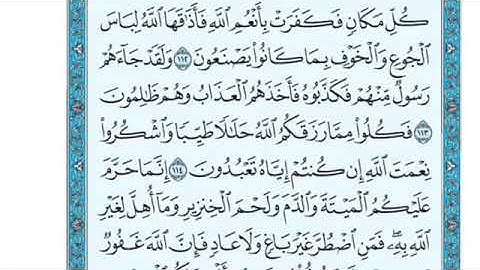 كُلِّ مَكَانٍ فَكَفَرَتْ بِأَنْعُمِ ٱللَّهِ فَأَذَٰقَهَا ٱللَّهُ لِبَاسَ
ٱلْجُوعِ وَٱلْخَوْفِ بِمَا كَانُوا۟ يَصْنَعُونَ ١١٢ وَلَقَدْ جَآءَهُمْ
رَسُولٌ مِّنْهُمْ فَكَذَّبُوهُ فَأَخَذَهُمُ ٱلْعَذَابُ وَهُمْ ظَٰلِمُونَ
١١٣ فَكُلُوا۟ مِمَّا رَزَقَكُمُ ٱللَّهُ حَلَٰلًا طَيِّبًا وَٱشْكُرُوا۟
نِعْمَتَ ٱللَّهِ إِن كُنتُمْ إِيَّاهُ تَعْبُدُونَ ١١٤ إِنَّمَا حَرَّمَ
عَلَيْكُمُ ٱلْمَيْتَةَ وَٱلدَّمَ وَلَحْمَ ٱلْخِنزِيرِ وَمَآ أُهِلَّ لِغَيْرِ
ٱللَّهِ بِهِۦ ۖ فَمَنِ ٱضْطُرَّ غَيْرَ بَاغٍ وَلَا عَادٍ فَإِنَّ ٱللَّهَ غَفُورٌ